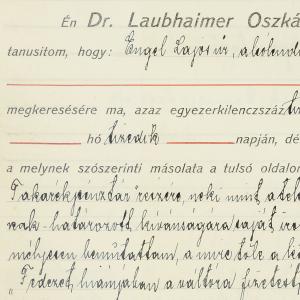 Én Dr. Laubhaimer Oszká
tanusitom, hogy: Engel Lajos úr,
megkeresésére ma, azaz egyezerkilenczszáz
hó tizedik napján, dé
a melynek szószerinti másolata a tulsó oldalon
Takarékpénztár részére, neki mint a
nak határozott kívánságára saját iro
mélyesen bemutattam, a mire tőle a kö
"Fedezet hiányában a váltóra fizetést